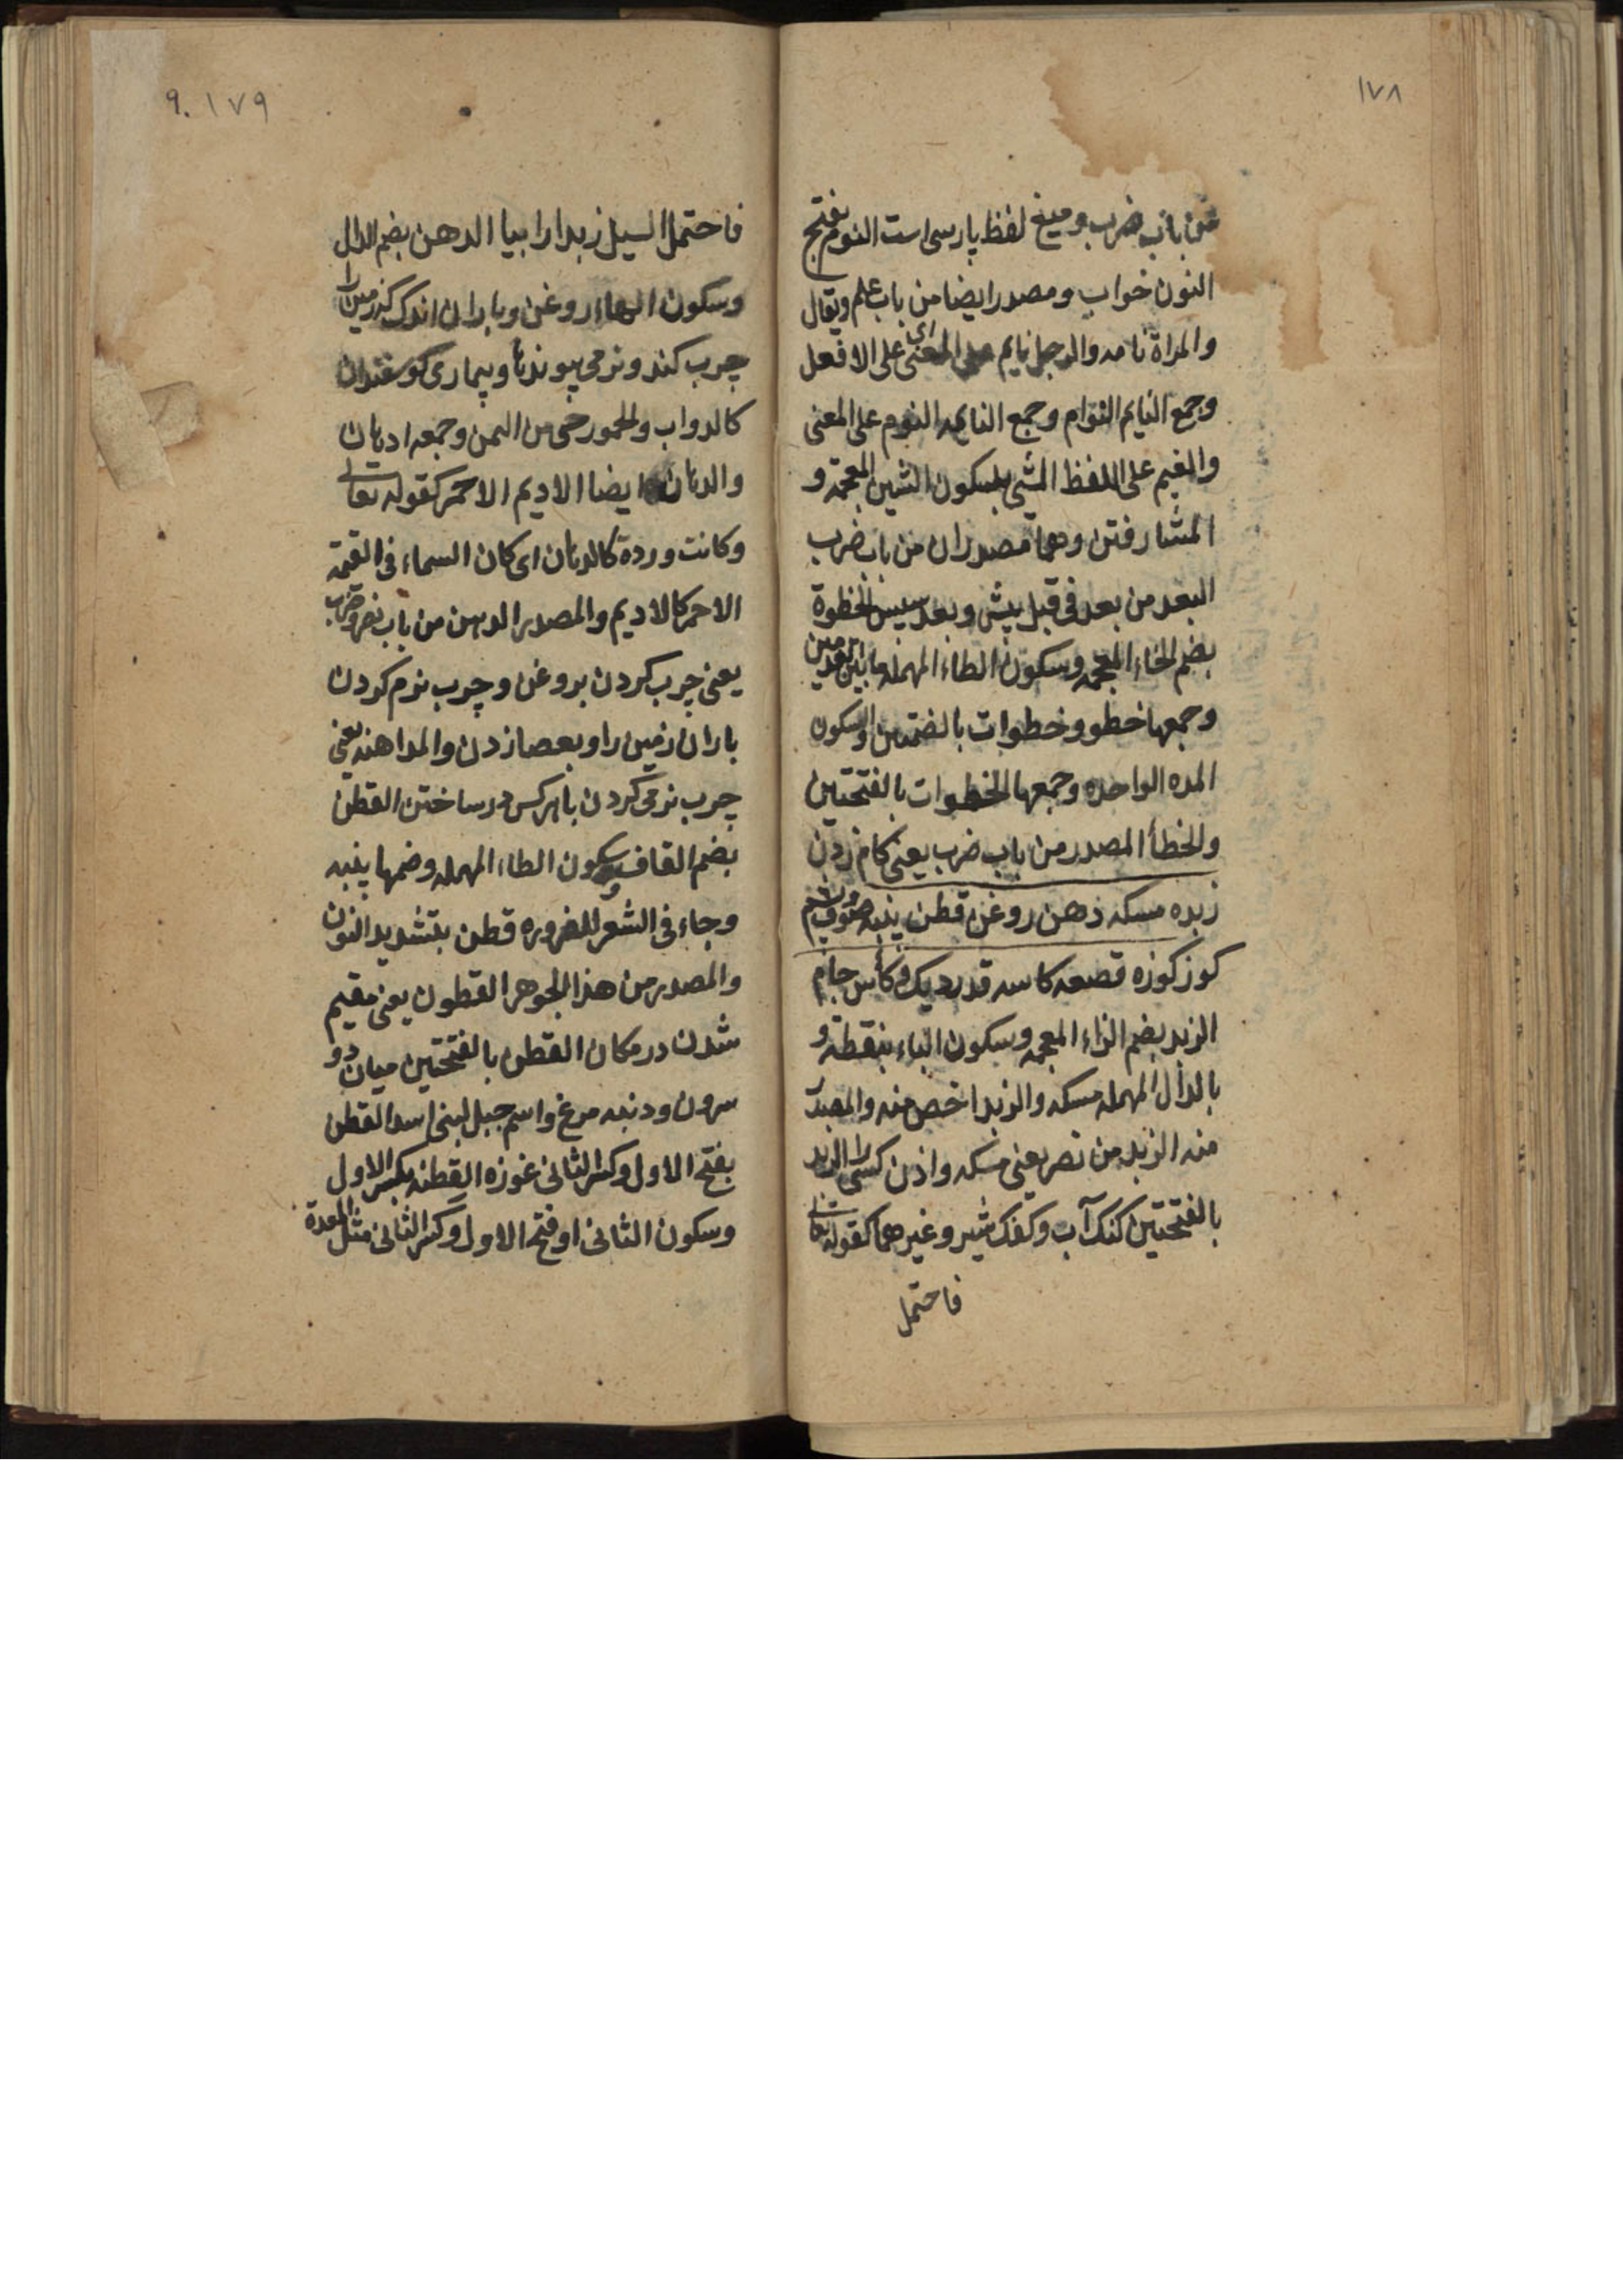 ١٧٨
من باب ضرب وميغ لفظ پارسی است النوم بفتح
النون خواب ومصدر ايضا من باب علم ويقال
والمراة نامه والرجل نايم على المعنى ای على الا فعل
وجمع النايم النوام وجمع النايمه النوم على المعنى
والغيم على اللفظ المشي بلسكون الشين المعجمة و
المشا رفتن وهما مصدران من باب ضرب
البعد من بعد فی قبل پیش وبعد سپس الخطوة
بضم الخاء المعجمه وسكون الطاء المهمله ما بين قدمين
وجمعها خطو وخطوات بالضمتين والسكون
المده الواحده وجمعها الخطوات بالفتحتين
والخطأ المصدر من باب ضرب يعنی کام زدن
زبده مسکه دهن روغن قطن پنبه صوف پشم
کوز کوزه قصعه کاسه قدر دیک وکأس جام
الزبد بضم الزاء المعجمه وسكون الباء بنقطة و
بالدال المهمله مسکه والزبد اخص منه والمصدر
منه الزبد من نصر يعنی مسکه دادن کسی را الزبد
بالفتحتين کنک آب وکفک شیر وغیرهما کقوله تعالی
فاحتمل
٩٠ ١٧٩
فاحتمل السيل زبدا رابيا الدهن بضم الدال
وسكون الهاء روغن وباران اندک کند زمین را
چرب کند ونرمی پیوندها وبیماری کوسفندان
کالدواب والحمور حی من اليمن وجمعه ادهان
والدهان ايضا الاديم الاحمر كقوله تعالی
وكانت وردة كالدهان ای كان السماء فی القيمة
الاحمر كالاديم والمصدر الدهن من باب نصر وضرب
يعنی چرب کردن بروغن وچرب نرم کردن
باران زمین را وبعصا زدن والمداهنه يعنی
چرب نرمی کردن با هرکس در ساختن القطن
بضم القاف وسكون الطاء المهمله وضمها پنبه
وجاء فی الشعر للضروره قطن بتشديد النون
والمصدر من هذا الجوهر القطون يعنی مقیم
شدن در مکان القطن بالفتحتين میان دو
سرون ودنبه مرغ واسم جبل لبنی اسد القطن
بفتح الاول وكسر الثانی غوزه القطنه بكسر الاول
وسكون الثانی او فتح الاول وكسر الثانی مثل المعدة